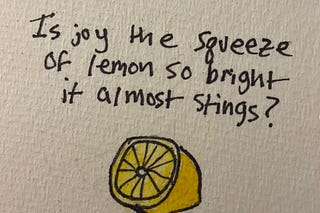 Is joy the squeeze
of lemon so bright
it almost stings?